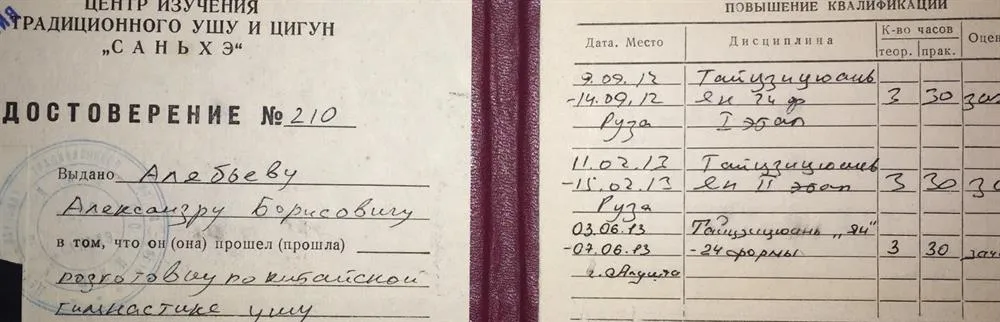 ЦЕНТР ИЗУЧЕНИЯ
ТРАДИЦИОННОГО УШУ И ЦИГУН
„САНЬХЭ“
ДОСТОВЕРЕНИЕ № 210
Выдано Алябьеву
Александру Борисовичу
в том, что он (она) прошел (прошла)
китайской
гимнастике ушу
ПОВЫШЕНИЕ КВАЛИФИКАЦИИ
Дата. Место Дисциплина К-во часов Оцен
теор. прак.
9.09.12 Тайцзицюань
-14.09.12 Ян 24 ф 3 30 за
Руза I этап
11.02.13 Тайцзицюань
-15.02.13 Ян II этап 3 30 за
Руза
03.06.13 Тайцзицюань „Ян“
-07.06.13 -24 формы 3 30 зач
г. Алушта